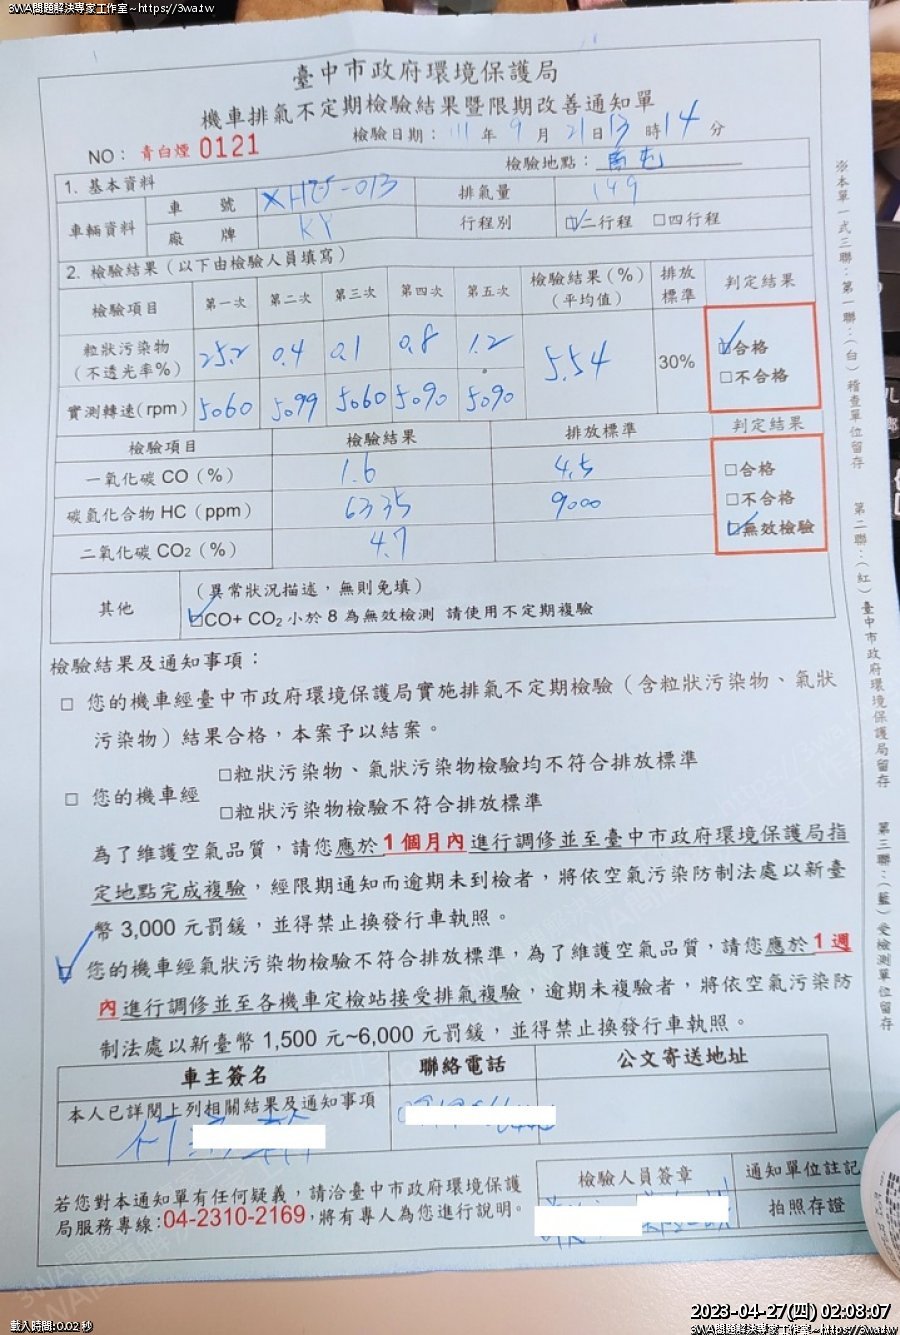 3WA問題解決專家工作室~https://3wa.tw
臺中市政府環境保護局
機車排氣不定期檢驗結果暨限期改善通知單
檢驗日期： 111 年 9 月 21 日 13 時 14 分
NO： 青白煙 0121
檢驗地點：
1. 基本資料
車輛資料 車 號 排氣量 149
廠 牌 KY 行程別 ☑二行程 □四行程
2. 檢驗結果（以下由檢驗人員填寫）
檢驗項目 第一次 第二次 第三次 第四次 第五次 檢驗結果(%)（平均值） 排放標準 判定結果
粒狀污染物（不透光率%） 25.2 0.4 0.1 0.8 1.2 5.54 30% ☑合格 □不合格
實測轉速(rpm) 5060 5099 5060 5090 5090
檢驗項目 檢驗結果 排放標準 判定結果
一氧化碳 CO（%） 1.6 4.5 □合格
碳氫化合物 HC（ppm） 6335 9000 □不合格
二氧化碳 CO2（%） 4.7 ☑無效檢驗
其他 （異常狀況描述，無則免填）
☑CO+ CO2 小於 8 為無效檢測 請使用不定期複驗
檢驗結果及通知事項：
□ 您的機車經臺中市政府環境保護局實施排氣不定期檢驗（含粒狀污染物、氣狀
污染物）結果合格，本案予以結案。
□ 您的機車經 □粒狀污染物、氣狀污染物檢驗均不符合排放標準
□粒狀污染物檢驗不符合排放標準
為了維護空氣品質，請您應於 1 個月內 進行調修並至臺中市政府環境保護局指
定地點完成複驗，經限期通知而逾期未到檢者，將依空氣污染防制法處以新臺
幣 3,000 元罰鍰，並得禁止換發行車執照。
☑ 您的機車經氣狀污染物檢驗不符合排放標準，為了維護空氣品質，請您應於 1 週
內 進行調修並至各機車定檢站接受排氣複驗，逾期未複驗者，將依空氣污染防
制法處以新臺幣 1,500 元~6,000 元罰鍰，並得禁止換發行車執照。
車主簽名 聯絡電話 公文寄送地址
本人已詳閱上列相關結果及通知事項
若您對本通知單有任何疑義，請洽臺中市政府環境保護
局服務專線:04-2310-2169，將有專人為您進行說明。
檢驗人員簽章 通知單位註記
拍照存證
※本單一式三聯：第一聯：（白）稽查單位留存 第二聯：（紅）臺中市政府環境保護局留存 第三聯：（藍）受檢測單位留存
載入時間:0.02 秒
2023-04-27(四) 02:08:07
3WA問題解決專家工作室~https://3wa.tw